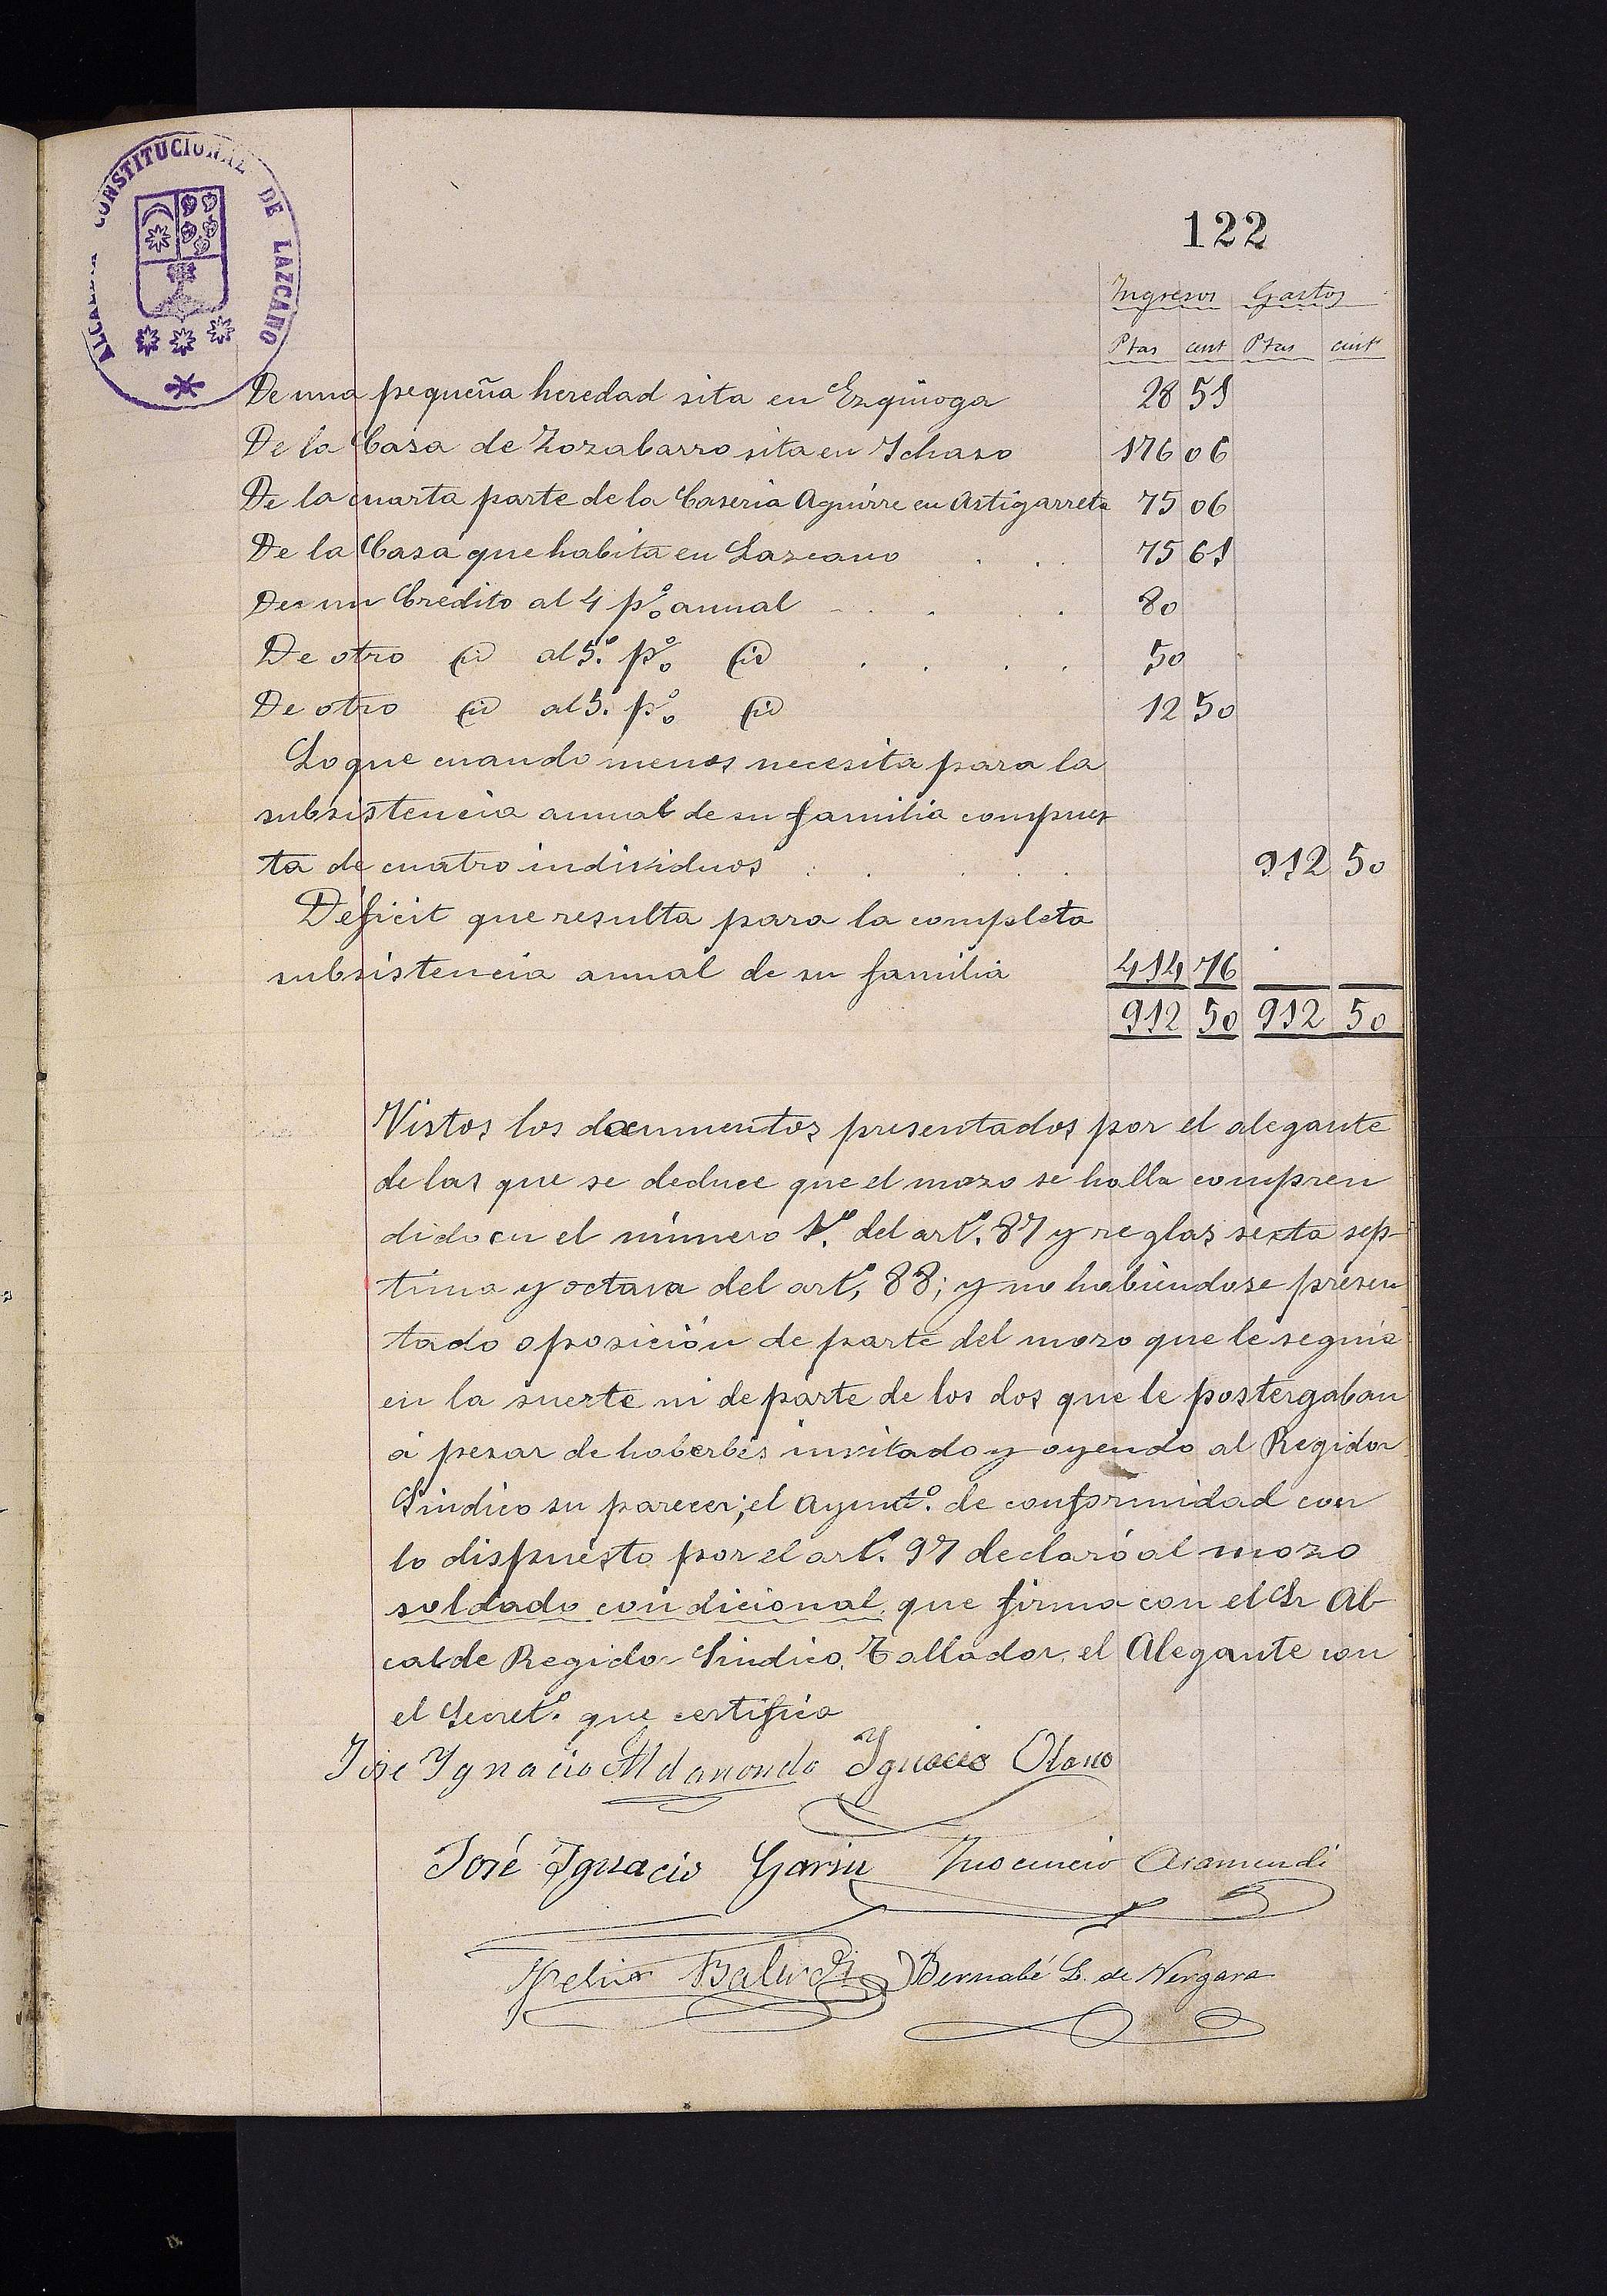 ALCALDIA CONSTITUCIONAL DE LAZCANO
122
Ingresos Gastos
Ptas cent Ptas cent
De una pequeña heredad sita en Ezquioga 28 51
De la Casa de Zozabarro sita en Ichaso 176 06
De la cuarta parte de la Caseria Aguirre en Astigarreta 75 06
De la Casa que habita en Lazcano . . . 75 61
De un Crédito al 4 p% annal . . . 80
De otro id al 5.º p% id . . . . 50
De otro id al 5. p% id 12 50
Lo que cuando menos necesita para la
subsistencia annal de su familia compues
ta de cuatro individuos . . . . . 912 50
Déficit que resulta para la completa
subsistencia annal de su familia 414 76
912 50 912 50
Vistos los documentos presentados por el alegante
de los que se deduce que el mozo se halla compren
dido en el número 1.º del artº. 87 y reglas sexta sep-
tima y octava del artº. 88; y no habiendose presen-
tado oposición de parte del mozo que le seguia
en la suerte ni de parte de los dos que le postergaban
á pesar de haberles invitado y oyendo al Regidor
Sindico su parecer; el Ayuntº. de conformidad con
lo dispuesto por el artº. 97 declaró al mozo
soldado condicional, que firma con el Sr Al-
calde Regidor Sindico, Tallador, el Alegante con
el Secretº. que certifico
José Ygnacio Aldanondo Ygnacio Olano
José Ignacio Garin Inocencio Aramendi
Bernabé L. de Vergara